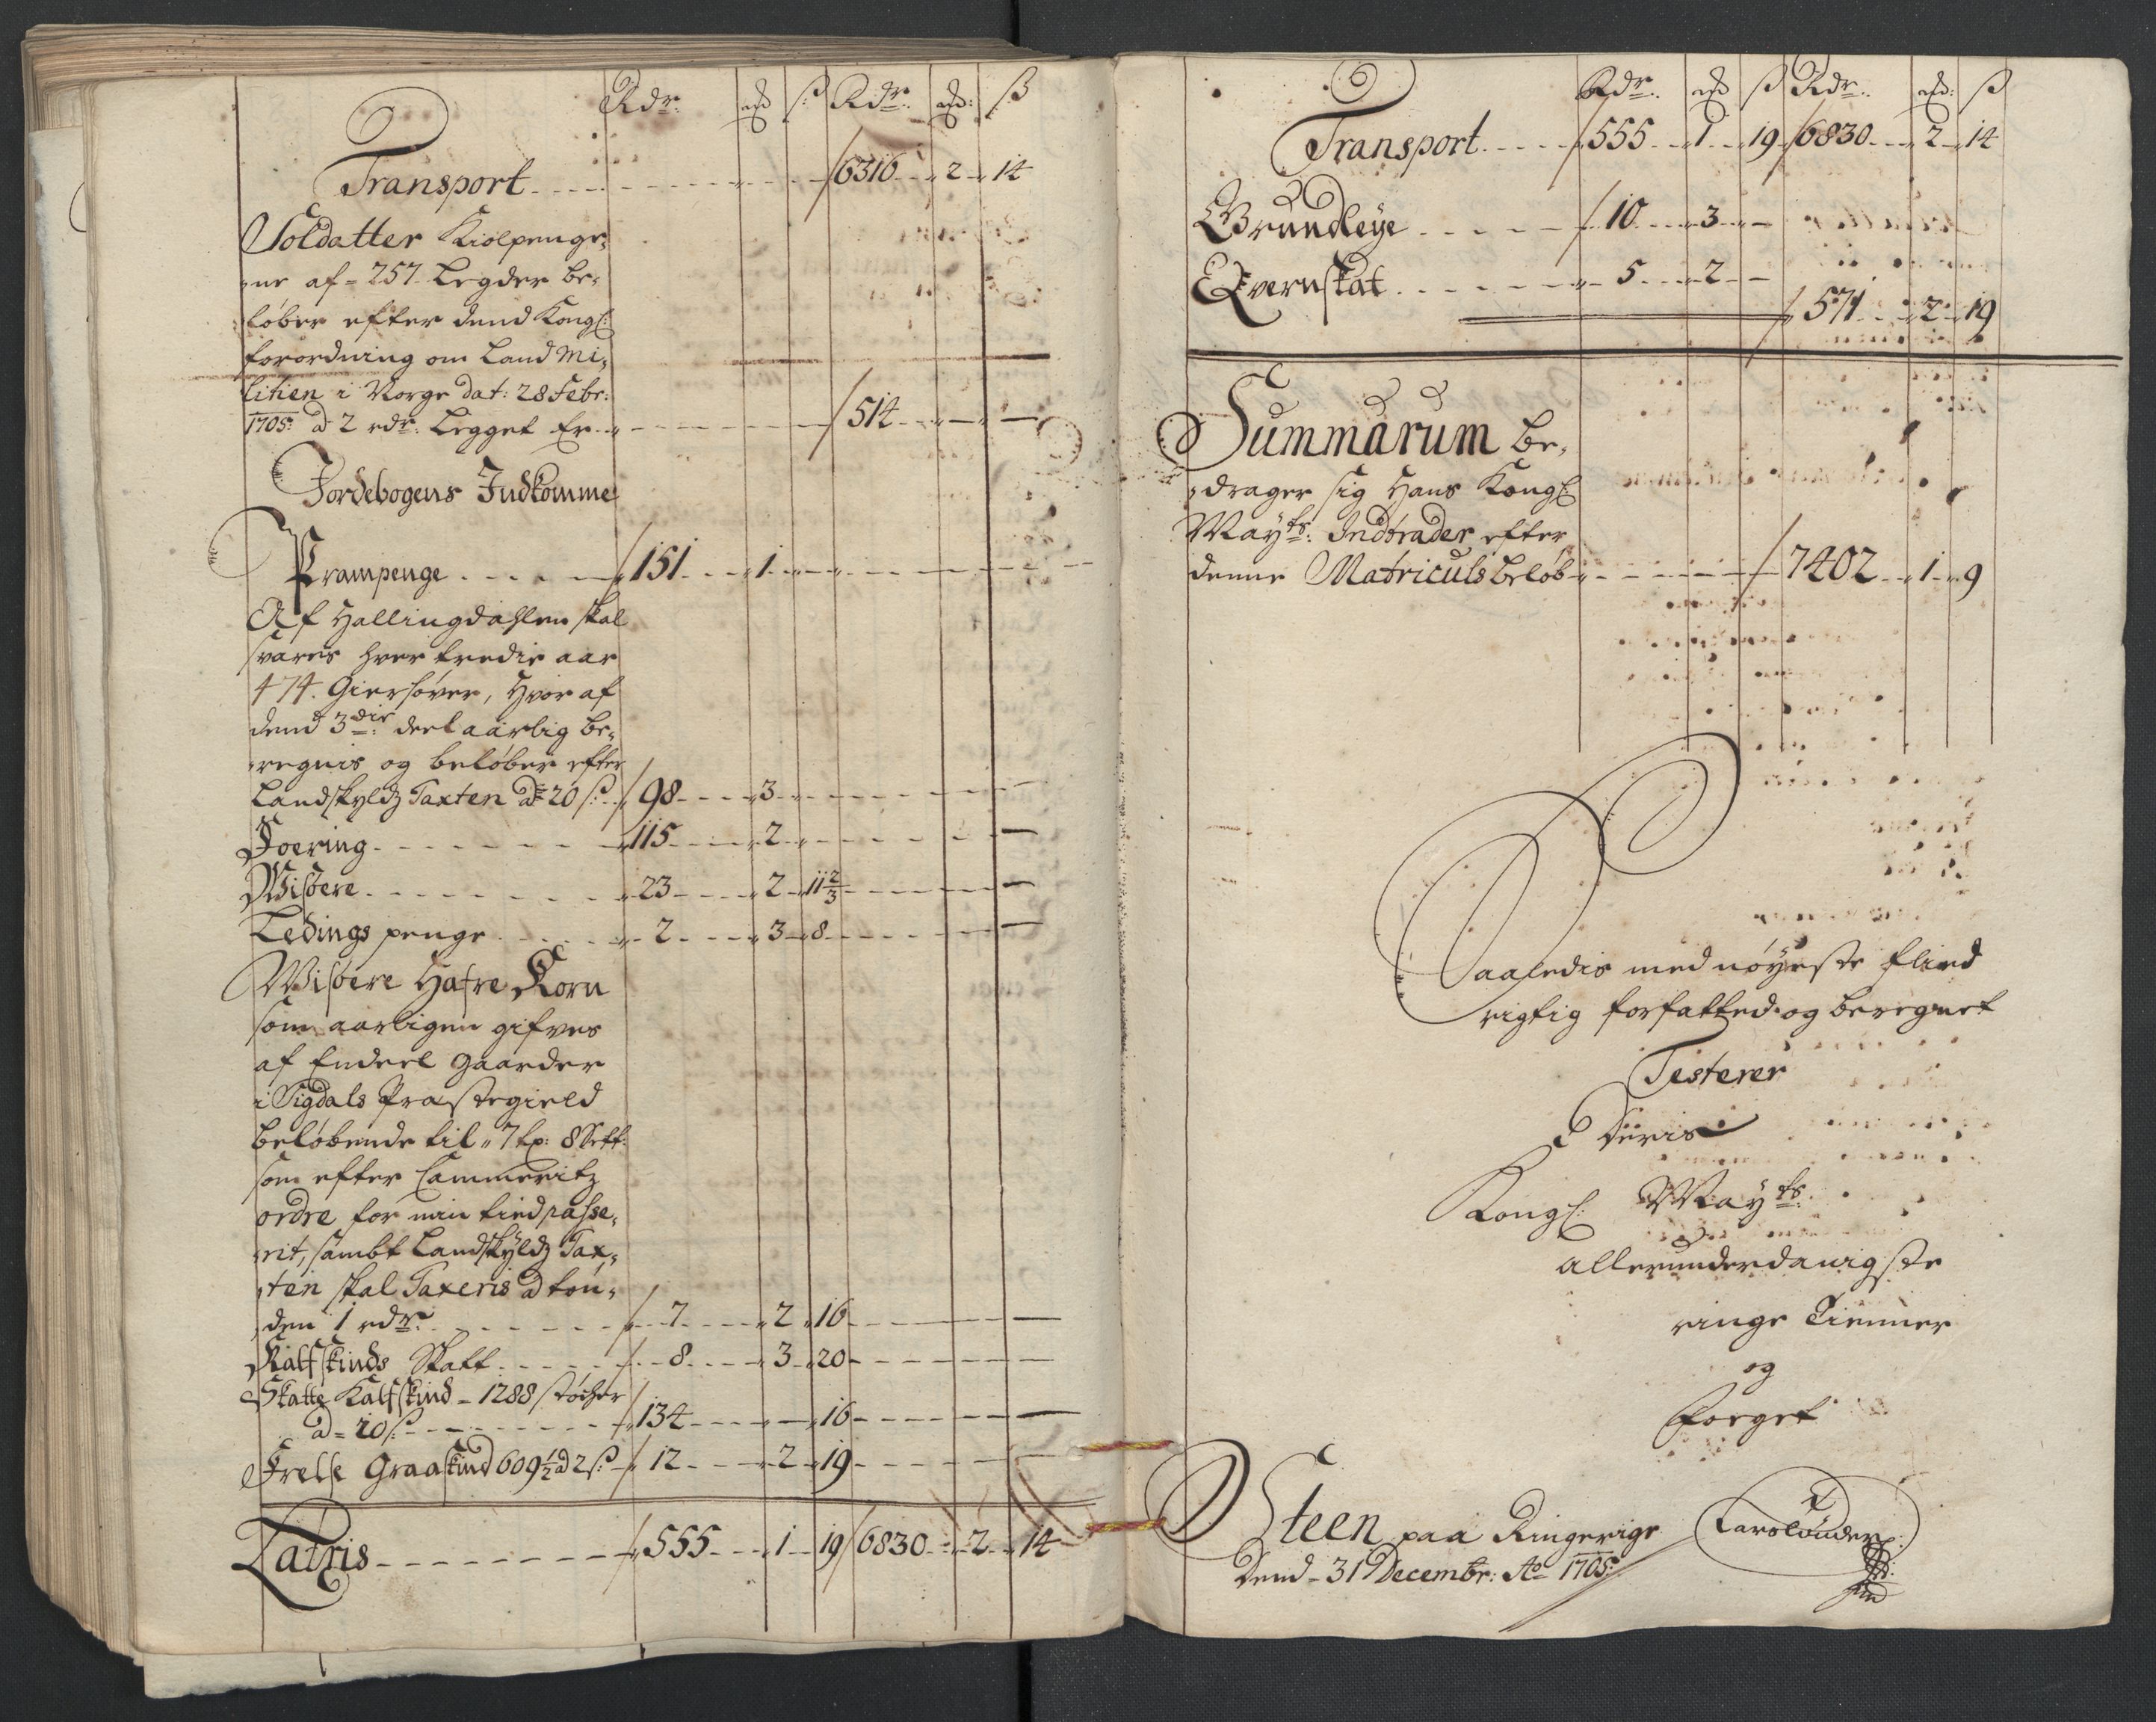 Rdr: ß Rdr: ß
Transport 6316 2 14
Soldatter Kiolpenge,
ne af 257 Legder be,
løber efter dend Kongl:
forordning om Land Mi,
litien i Norge dat: 28 Febr:
1705: â 2 rdr: Legget Er 514
Jordebogens Indkomme
Prampenge 151 1
Af Hallingdahlen skal
svares hver tredie aar
474. Giersøver, Hvor af
dend 3die: deel aarlig be,
regnis og beløber efter
Landskyldz Taxten â 20 ß 98 3
Foering 115 2
Wisøere 23 2 11⅔
Ledings penge 2 3 8
Wisøere Hafre Korn
som aarligen gifves
af Endeel Gaarder
i Sigdals Præstegield
beløbende til 7 tp: 8 Sett:
som efter Cammeritz
ordre for min tied passe,
rit, sambt Landskyldz Tax,
ten skal Taxeris â tøn,
den 1 rdr: 7 2 16
Kalfskinds Skatt 8 3 20
Skatte Kalfskind 1288 støcher
â 10 ß 134 16
Frelse Graaskind 609½ â 2 ß 12 2 19
Latris 555 1 19 6830 2 14
Rdr: ß Rdr: ß
Transport 555 1 19 6830 2 14
Grundleye 10 3
Qvernskat 5 2
571 2 19
Summarum be,
drager sig Hans Kongl:
Mayts: Indtrader efter
denne Matriculs beløb 7402 1 9
Saaledis med nøyeste flied
rigtig forfatted og beregnet
Testerer
Kongl: Mayts:
allerunderdanigste
ringe Tienner
og
Foeget
Steen paa Ringerige
Dend 31 Decembr: Ao 1705: